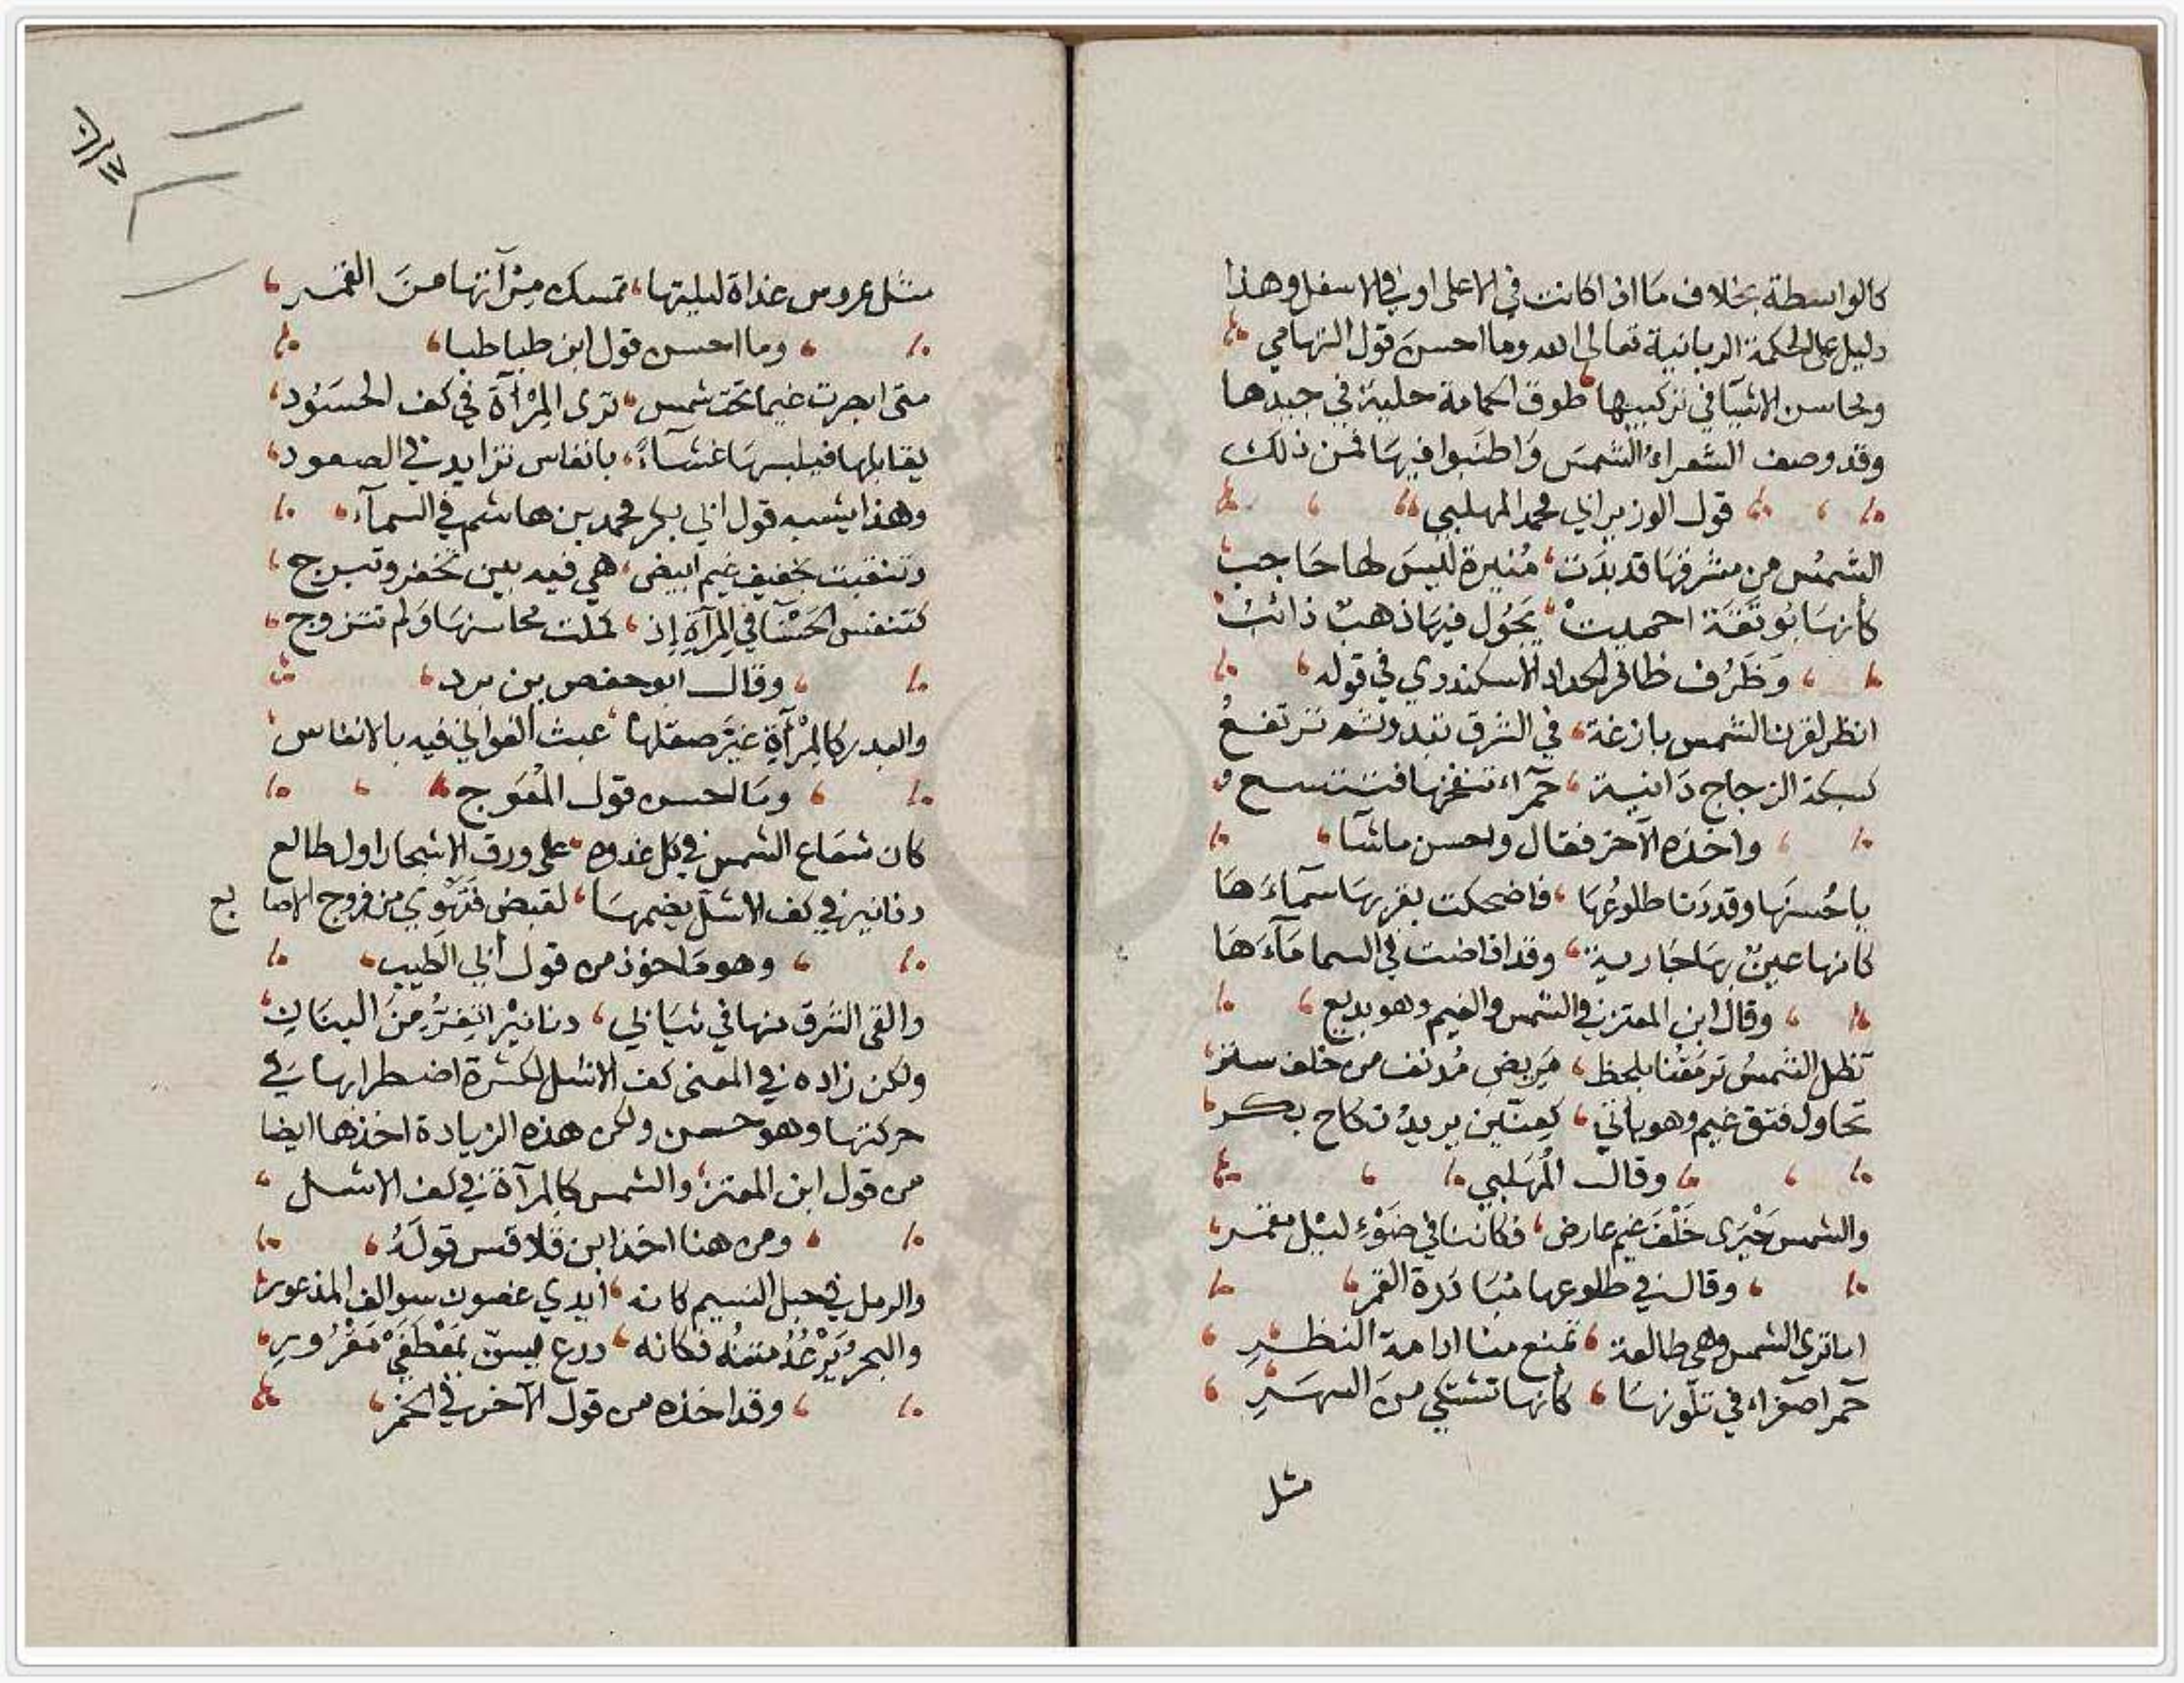 كالواسطة بخلاف ما اذا كانت في الاعلى او في الاسفل وهذا
دليل على الحكمة الربانية تعالى الله وما احسن قول التهامي
ومحاسن الاشيآ في تركيبها طوق الحمامة حلية في جيدها
وقد وصف الشعراء الشمس واطنبوا فيها فمن ذلك
قول الوزير ابي محمد المهلبي
الشمس من مشرقها قد بدت منيرة ليس لها حاجب
كأنها بوتقة احميت يجول فيها ذهب ذائب
وظرف ظافر الحداد الاسكندري في قوله
انظر لقرن الشمس بازغة في الشرق تبدو ثم ترتفع
كسبكة الزجاج دانية حمرآء تنفخها فتتسع
واخذه الآخر فقال واحسن ماشآ
ياحسنها وقد دنا طلوعها فاضحكت بغربها سمآءها
كانها عين بها جارية وقد افاضت في السما مآءها
وقال ابن المعتز في الشمس والغيم وهو بديع
تظل الشمس ترمقنا بلحظ مريض مدنف من خلف ستر
تحاول فتق غيم وهو يأبي كعنين يريد نكاح بكر
وقال المهلبي
والشمس حيرى خلف غيم عارض فكاننا في ضوء ليل مقمر
وقال في طلوعها مبادرة القمر
اما ترى الشمس وهي طالعة تمنع منا ادامة النظر
حمرا صفراء في تلونها كأنها تشتكي من السهر
مثل
مثل عروس غداة ليلتها تمسك مرآتها من القمر
وما احسن قول ابن طباطبا
متى ابصرت غيما تحت شمس ترى المرآة في كف الحسود
يقابلها فيلبسها غشآء بانفاس تزايد في الصعود
وهذا يشبه قول ابي بكر محمد بن هاشم في السمآء
وتنقبت بخفيف غيم ابيض هي فيه بين تخفر وتبرج
كتنفس الحسنآ في المرآة اذ كملت محاسنها ولم تتزوج
وقال ابو حفص بن برد
والبدر كالمرآة غير صقلها عبث الغواني فيه بالانفاس
وما احسن قول المعوج
كان شعاع الشمس في كل غدوه على ورق الاشجار اول طالع
دنانير في كف الاشل يضمها لقبض فتهوي من فروج الاصابع
وهو ماخوذ من قول ابي الطيب
والقى الشرق منها في ثيابي دنانيرا تفر من البنان
ولكن زاده في المعنى كف الاشل لكثرة اضطرابها في
حركتها وهو حسن ولكن هذه الزيادة اخذها ايضا
من قول ابن المعتز والشمس كالمرآة في كف الاشل
ومن هنا اخذ ابن قلاقس قوله
والرمل في حبل النسيم كانه ايدي غصون سوالف المذعور
والبحر يرعد متنه فكانه درع بمعطفي مقرور
وقد اخذه من قول الآخر في الخمر